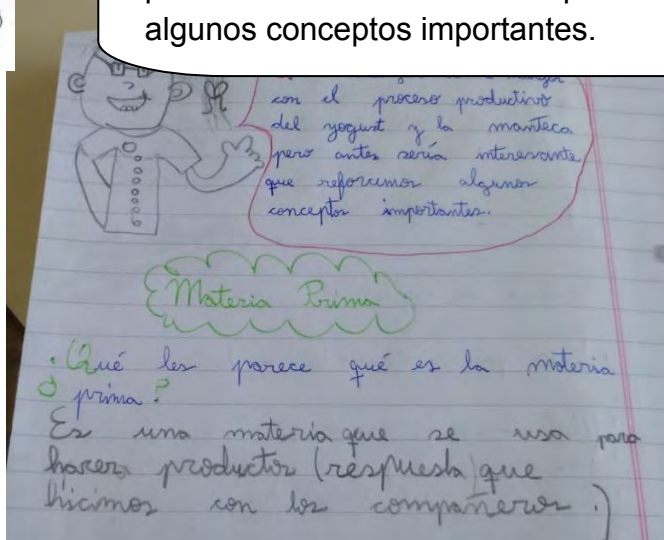 algunos conceptos importantes.
con el proceso productivo
del yogurt y la manteca
pero antes sería interesante
que reforcemos algunos
conceptos importantes.
Materia Prima
¿Qué les parece qué es la materia
prima?
Es una materia que se usa para
hacer productos (respuesta que
hicimos con los compañeros.)